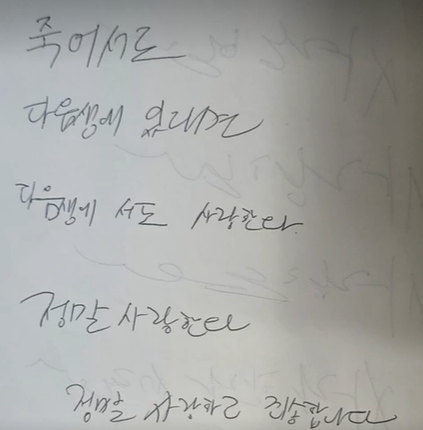 죽어서도
다음생에 있다면
다음생에 서도 사랑한다.
정말 사랑한다
정말 사랑하고 죄송합니다